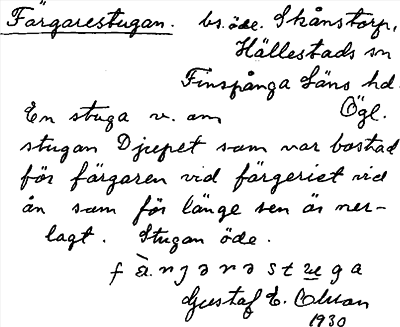 Färgarestugan. bs. öde. Skånstorp,
Hällestads sn
Finspånga Läns hd.
Ögl.
En stuga v. om
stugan Djupet som var bostad
för färgaren vid färgeriet vid
ån som för länge sen är ner-
lagt. Stugan öde.
Gustaf E. Olson
1930